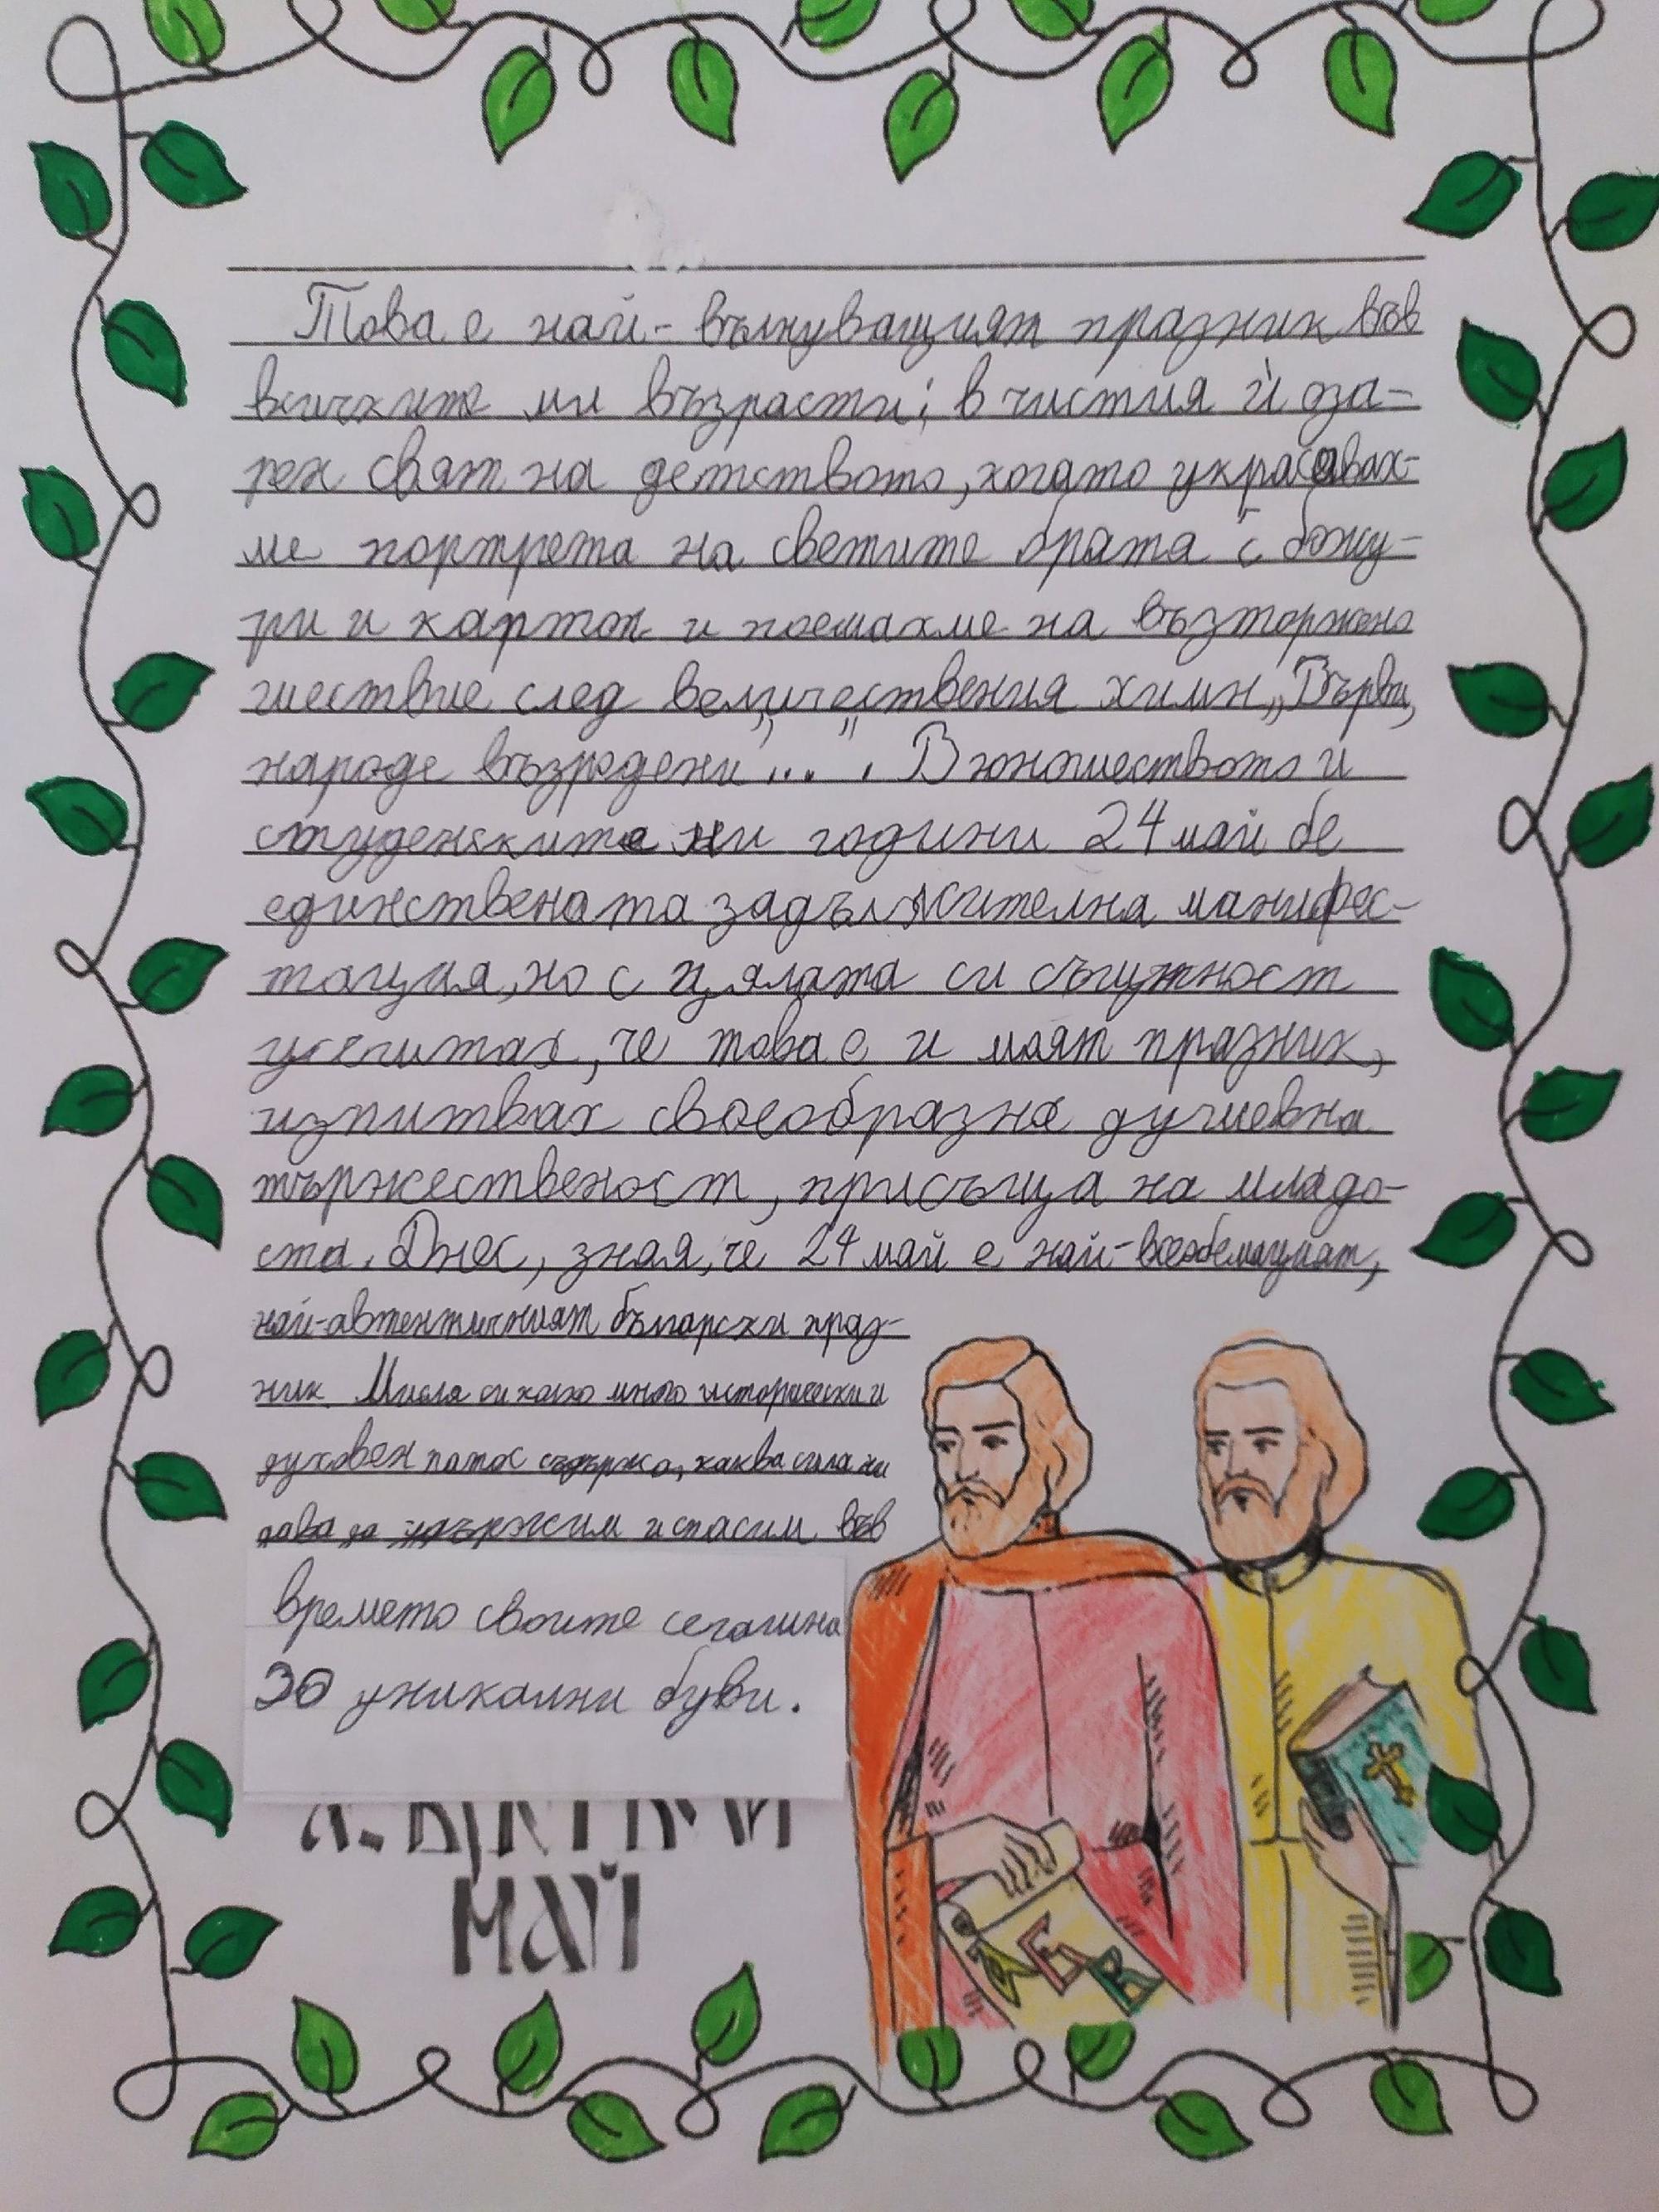 Това е най-вълнуващият празник във
всичките ми възрасти; в чистия ѝ оза-
рен свят на детството, когато украсявах-
ме портрета на светите братя с божу-
ри и картон и поемахме на възторжено
шествие след величествения химн „Върви,
народе възродени"... . В юношеството и
студенските ни години 24 май бе
единствената задължителна манифес-
тация, но с цялата си същност
усещах, че това е и моят празник,
изпитвах своеобразна душевна
тържественост, присъща на младо-
ста. Днес, зная, че 24 май е най-всеобемащият,
най-автентичният български праз-
ник. Мисля си колко много исторически и
духовен патос съдържа, каква сила ни
дава да удържим и спасим във
времето своите сегашна
30 уникални букви.
МАЙ
АЕВ